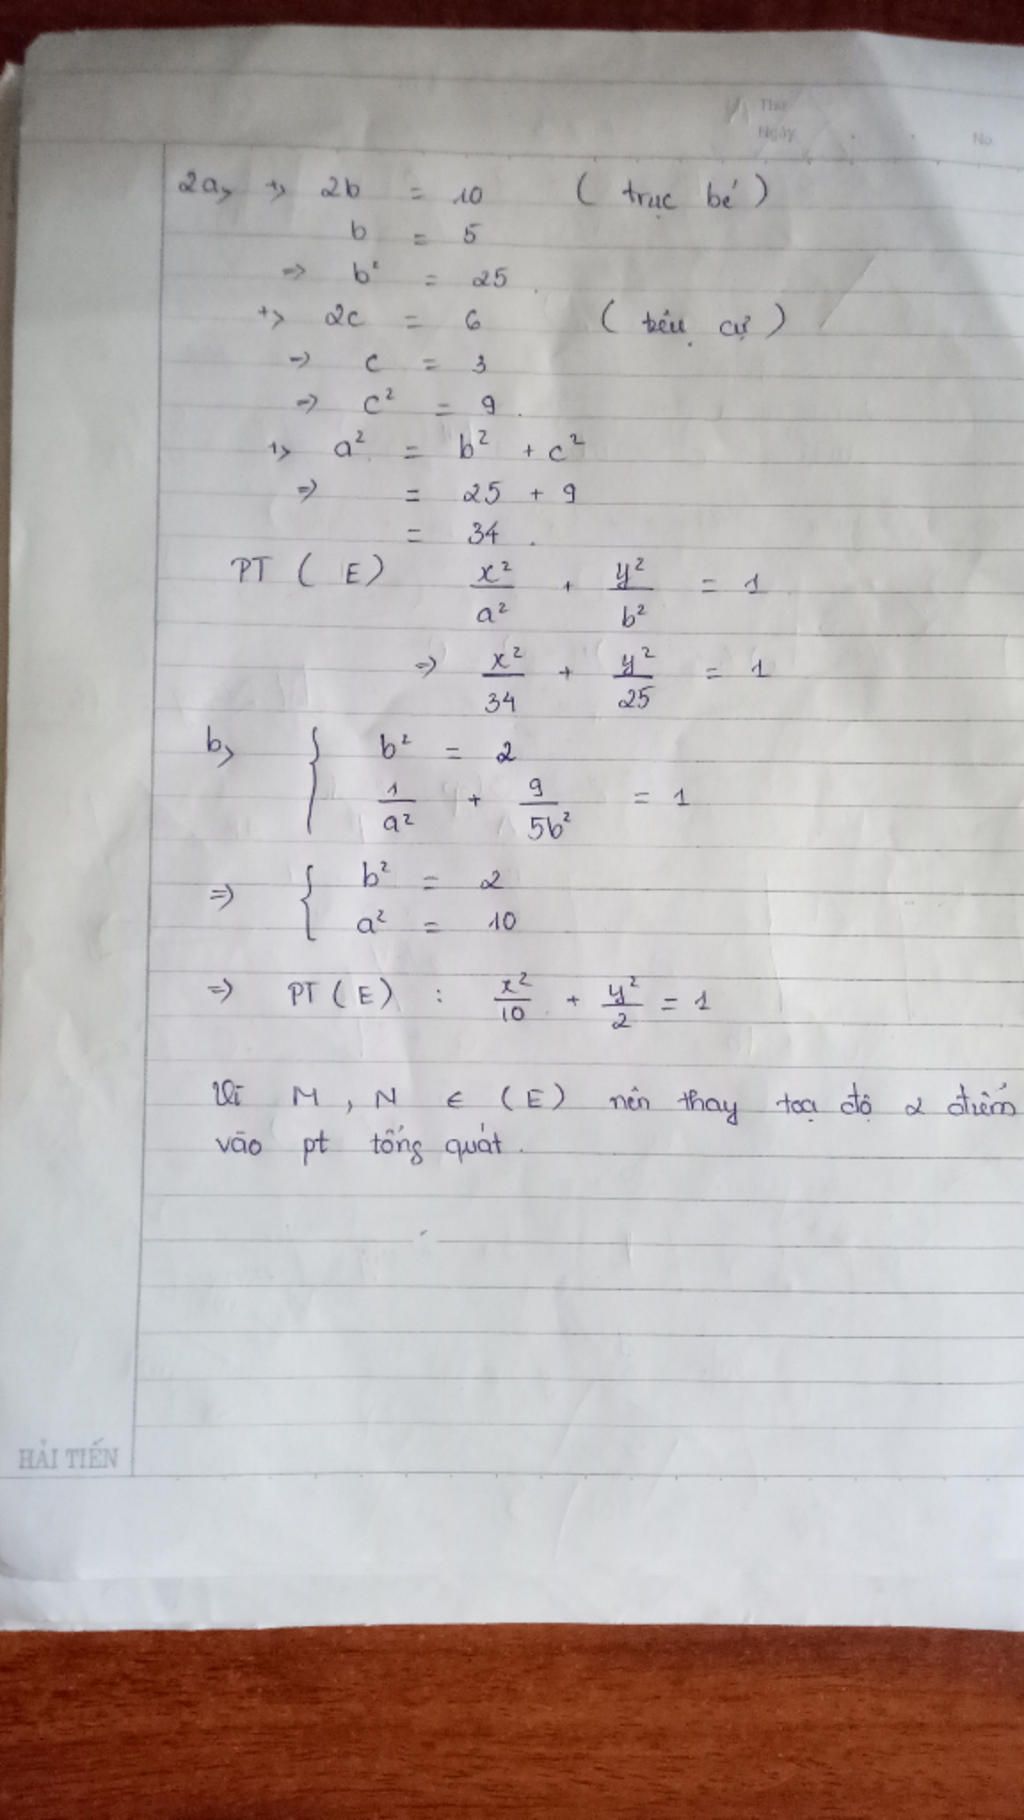 Thứ
Ngày
No
2a, +> 2b = 10 ( trục bé )
b = 5
=> b² = 25 .
+> 2c = 6 ( tiêu cự )
=> c = 3
=> c² = 9 .
+> a² = b² + c²
=> = 25 + 9
= 34 .
PT ( E ) x²/a² + y²/b² = 1
=> x²/34 + y²/25 = 1
b, { b² = 2
1/a² + 9/5b² = 1
=> { b² = 2
a² = 10
=> PT ( E ) : x²/10 + y²/2 = 1
Vì M , N ∈ ( E ) nên thay toạ độ 2 điểm
vào pt tổng quát .
HẢI TIẾN